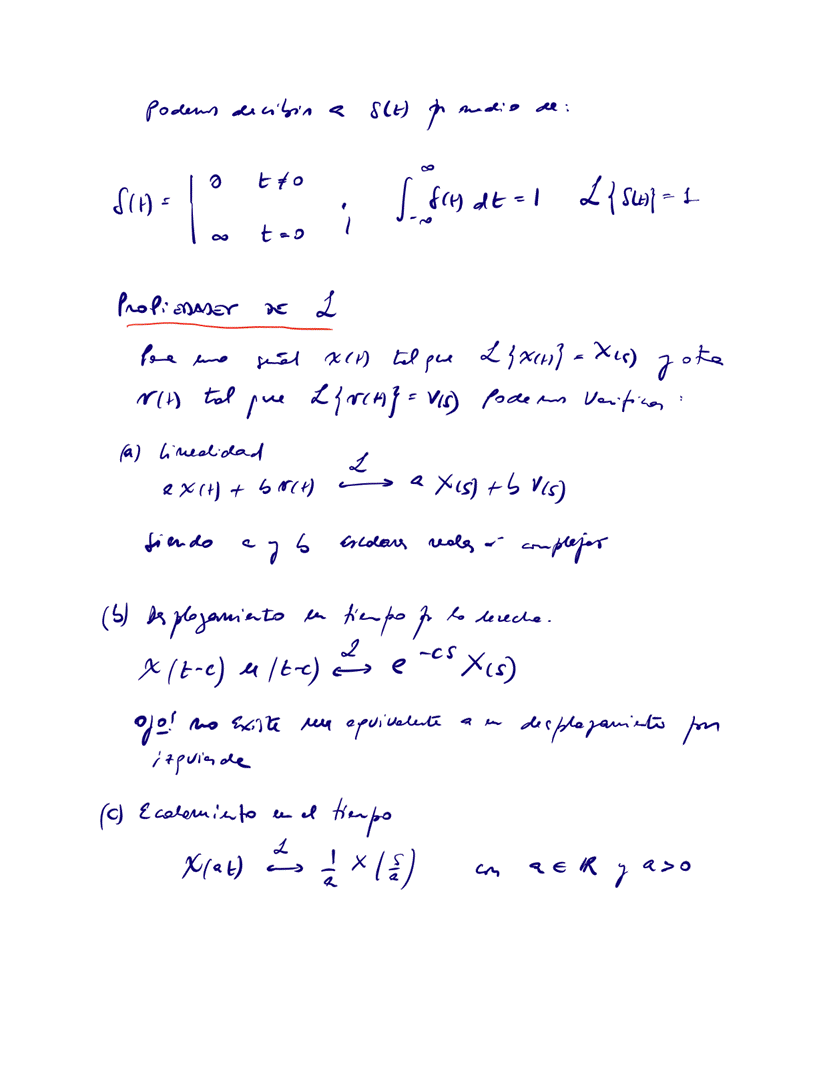 Podemos describir a δ(t) por medio de:
δ(t) = | 0 t≠0 ; ∫_{-∞}^{∞} δ(t) dt = 1 ℒ{δ(t)} = 1
∞ t=0
PROPIEDADES DE ℒ
Para una señal x(t) tal que ℒ{x(t)} = X(s) y otra
v(t) tal que ℒ{v(t)} = V(s) Podemos Verificar:
(a) Linealidad
a x(t) + b v(t) ⟷^ℒ a X(s) + b V(s)
Siendo a y b escalares reales o complejos
(b) Desplazamiento en tiempo por la derecha.
x(t-c) u(t-c) ⟷^ℒ e^{-cs} X(s)
Ojo! no Existe un equivalente a un desplazamiento por
izquierda
(c) Escalamiento en el tiempo
x(at) ⟷^ℒ 1/a X(s/a) con a ∈ ℝ y a>0